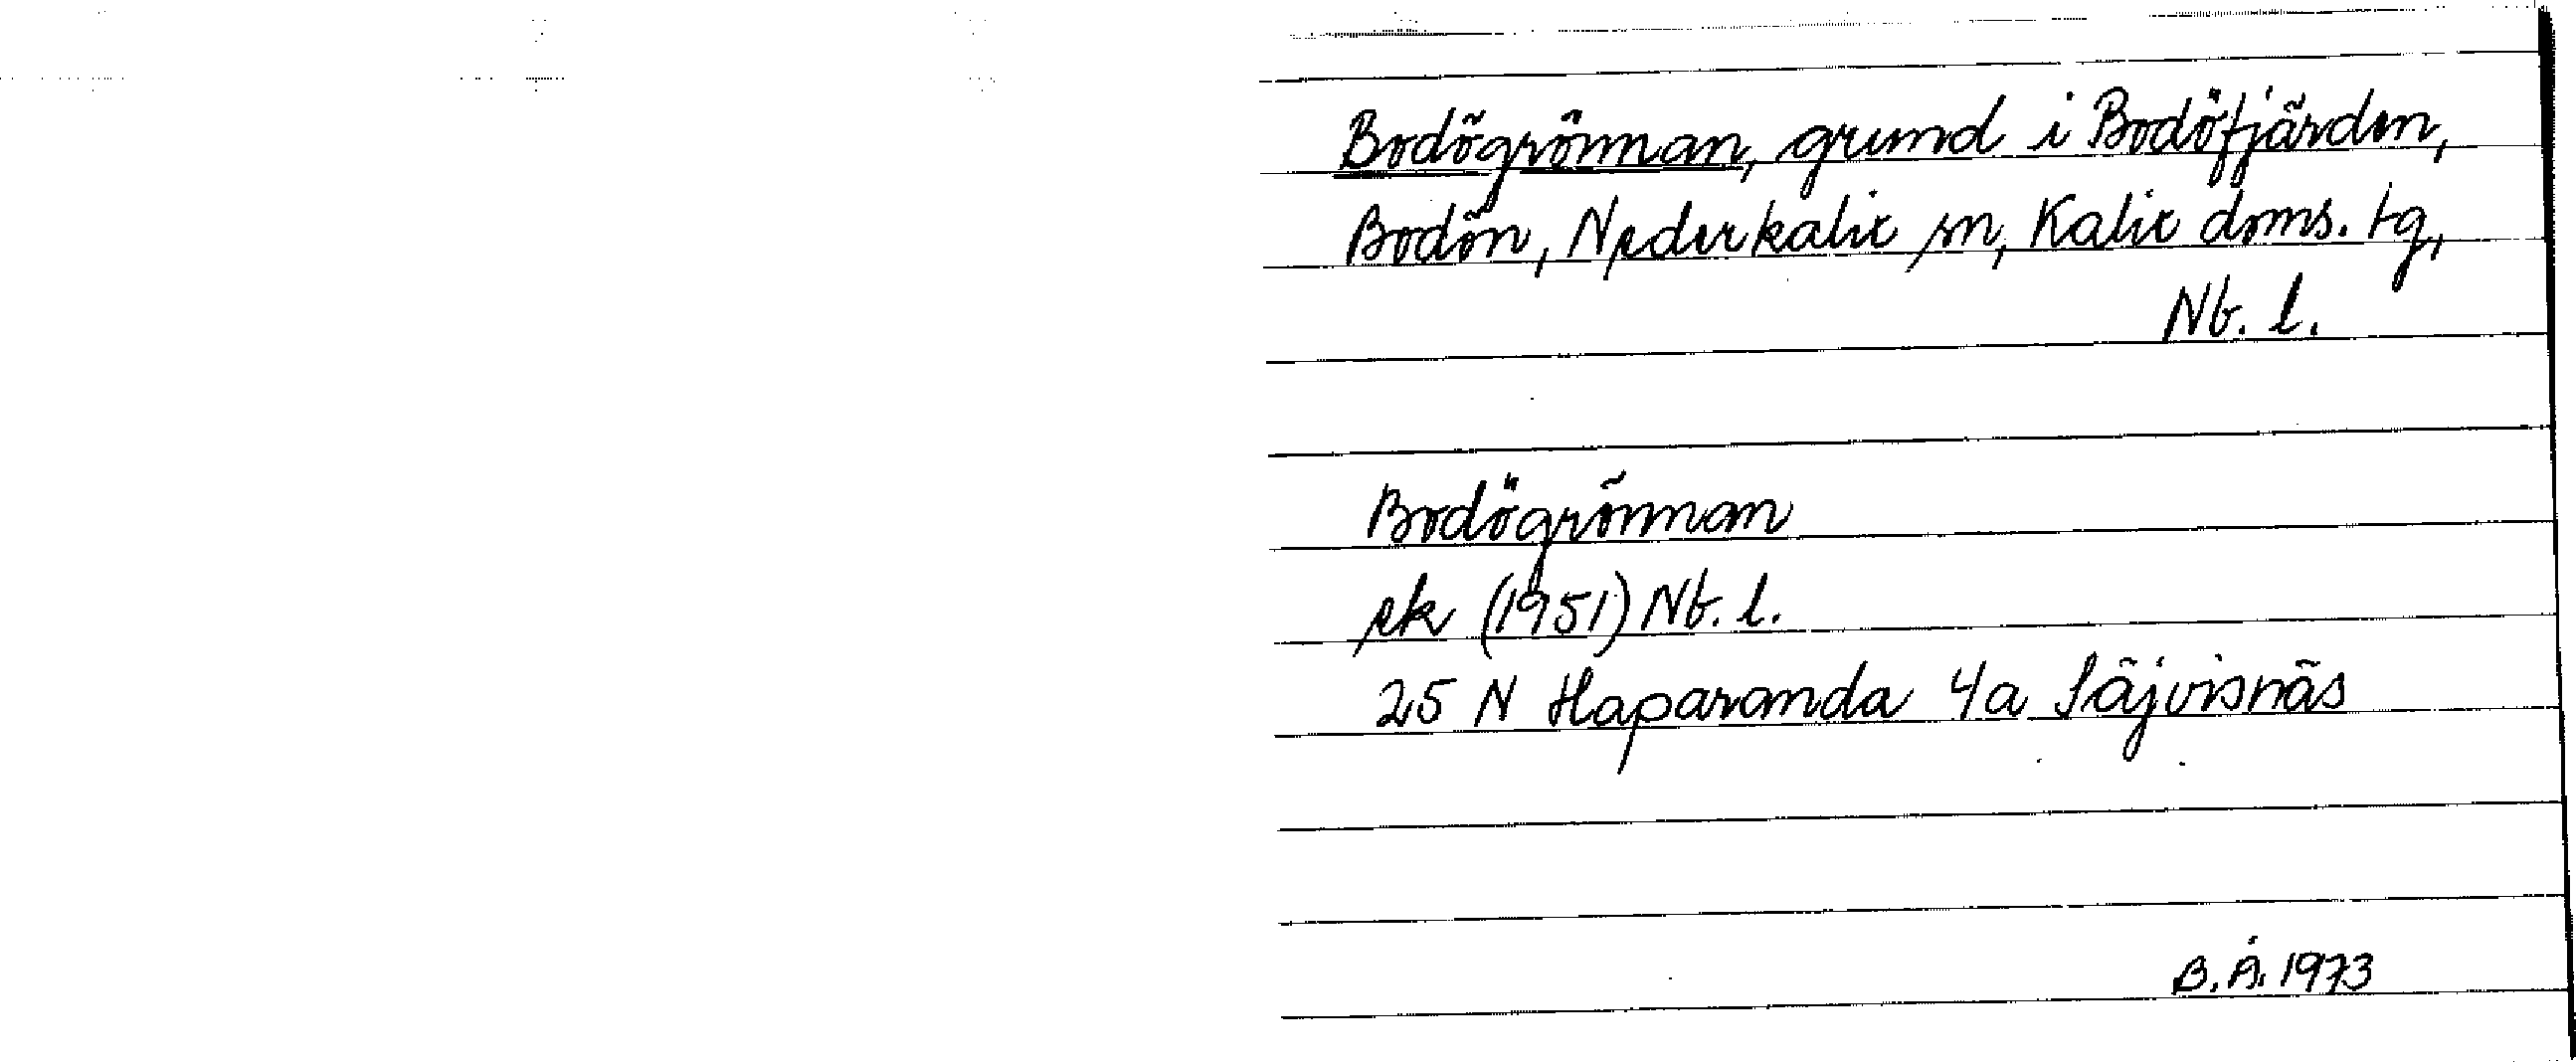 Bodögrönnan, grund i Bodöfjärden,
Bodön, Nederkalix sn, Kalix doms. tg,
Nb. l.
Bodögrönnan
ek (1951) Nb. l.
25 N Haparanda 4a Säjvisnäs
B.Å. 1973